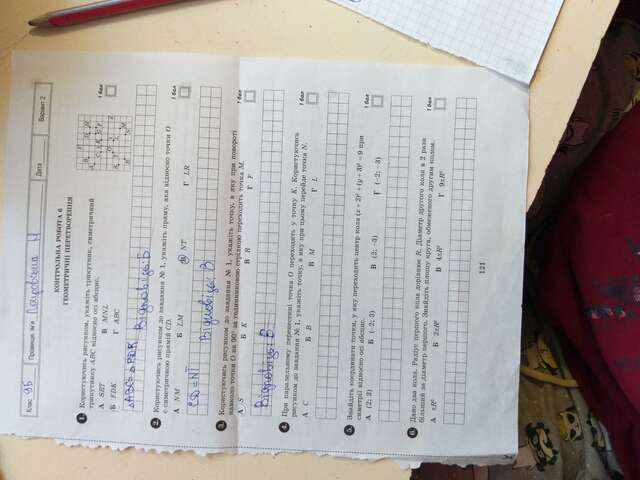 Клас 9Б Прізвище, ім'я Дата Варіант 2
КОНТРОЛЬНА РОБОТА 6
ГЕОМЕТРИЧНІ ПЕРЕТВОРЕННЯ
1 Користуючись рисунком, укажіть трикутник, симетричний
трикутнику ABC відносно осі абсцис.
А SRT В MNL
Б FDK Г ABC
1 бал
Відповідь: Б
2 Користуючись рисунком до завдання № 1, укажіть пряму, яка відносно точки O
є симетричною прямій CD.
1 бал
А NM Б LM В NT Г LR
Відповідь: В
3 Користуючись рисунком до завдання № 1, укажіть точку, в яку при повороті
навколо точки O на 90° за годинниковою стрілкою переходить точка M.
1 бал
А S Б K В R Г F
Відповідь: В
4 При паралельному перенесенні точка O переходить у точку K. Користуючись
рисунком до завдання № 1, укажіть точку, в яку при цьому перейде точка N.
1 бал
А C Б B В M Г L
5 Знайдіть координати точки, у яку переходить центр кола (x + 2)² + (y + 3)² = 9 при
симетрії відносно осі абсцис.
1 бал
А (2; 3) Б (−2; 3) В (2; −3) Г (−2; −3)
6 Дано два кола. Радіус першого кола дорівнює R. Діаметр другого кола в 2 рази
більший за діаметр першого. Знайдіть площу круга, обмеженого другим колом.
1 бал
А πR² Б 2πR² В 4πR² Г 9πR²
121